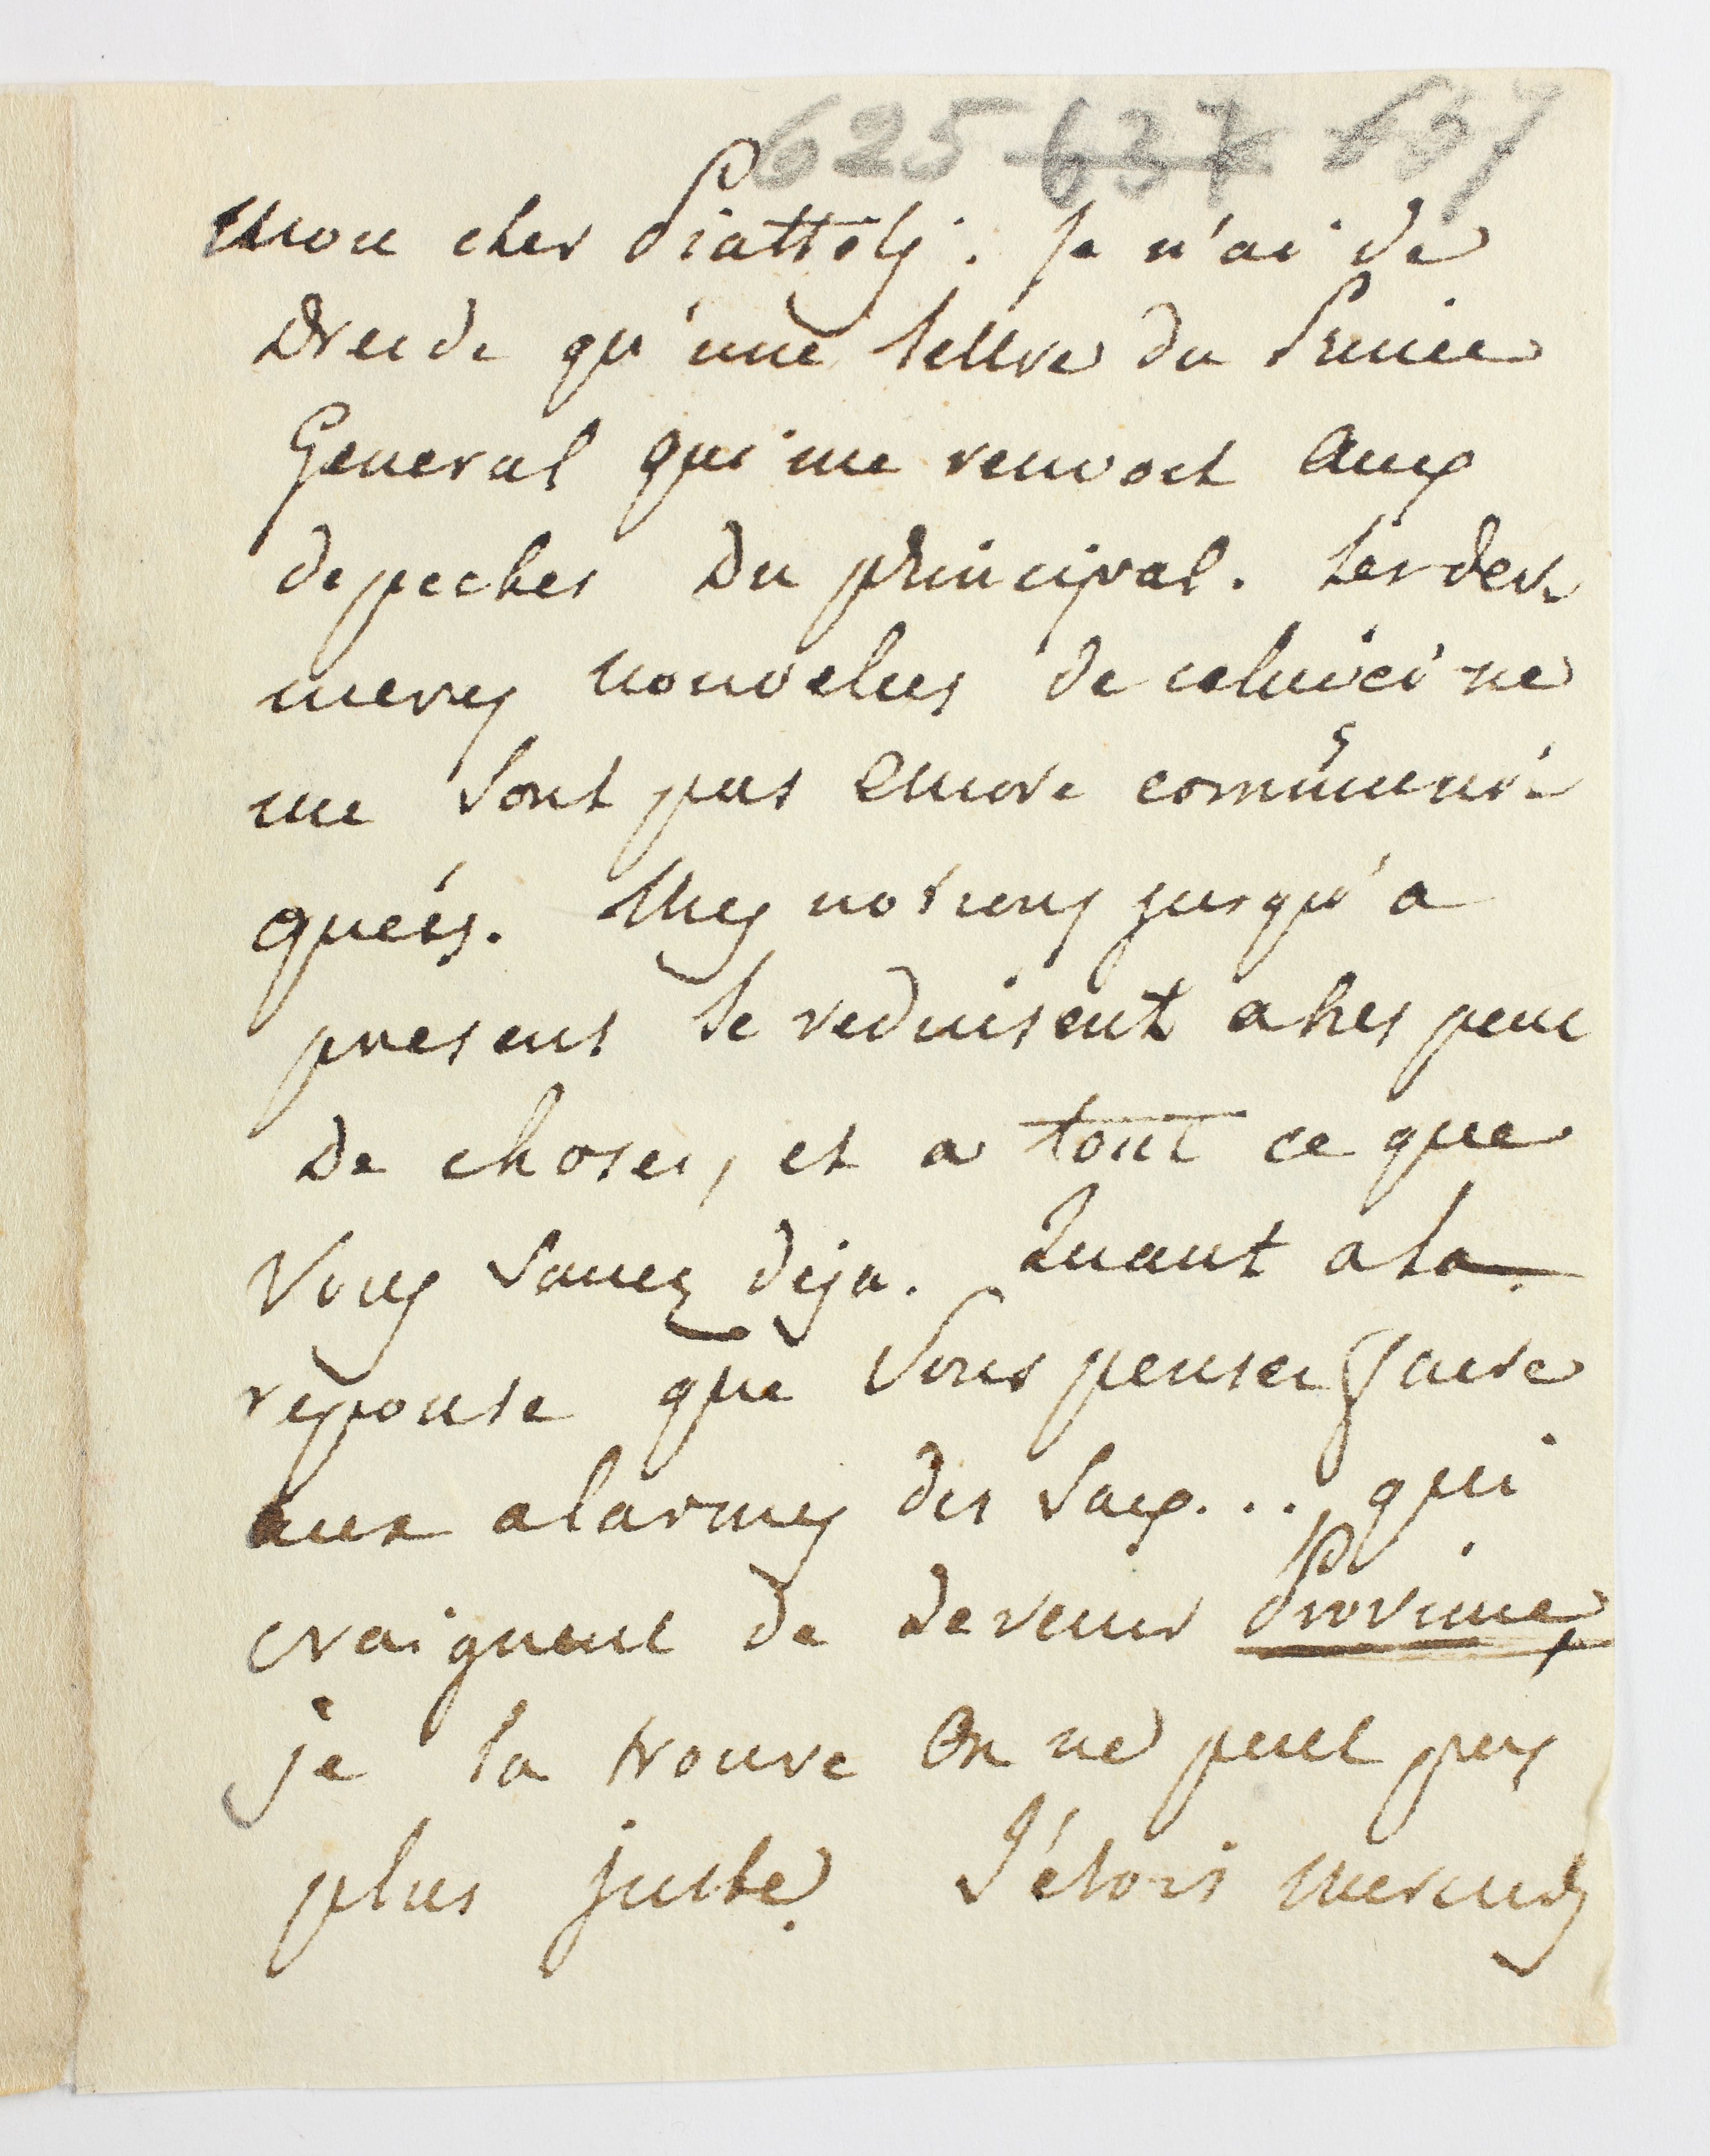 625 637 637
Mon cher Piattoly. Je n'ai de
Dresde qu'une lettre du Prince
General qui me renvoit aux
depeches du principal. Les der-
nieres nouvelles de celuici ne
me sont pas encore communi-
queés. Mes notions jusqu'a
present se reduisent a tres peu
de choses, et a tout ce que
Vous savez deja. Quant a la
reponse que Vous pensez faire
aux alarmes des Sax... qui
craignent de devenir Province,
je la trouve on ne peut pas
plus juste. J'étois